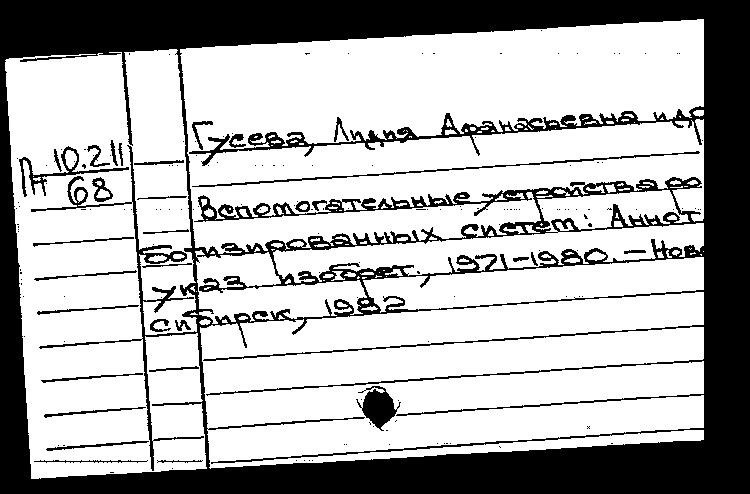 Гусева, Лидия Афанасьевна и др
Пн 10.211
68
Вспомогательные устройства ро
ботизированных систем: Аннот
указ. изобрет., 1971-1980. — Ново
сибирск, 1982